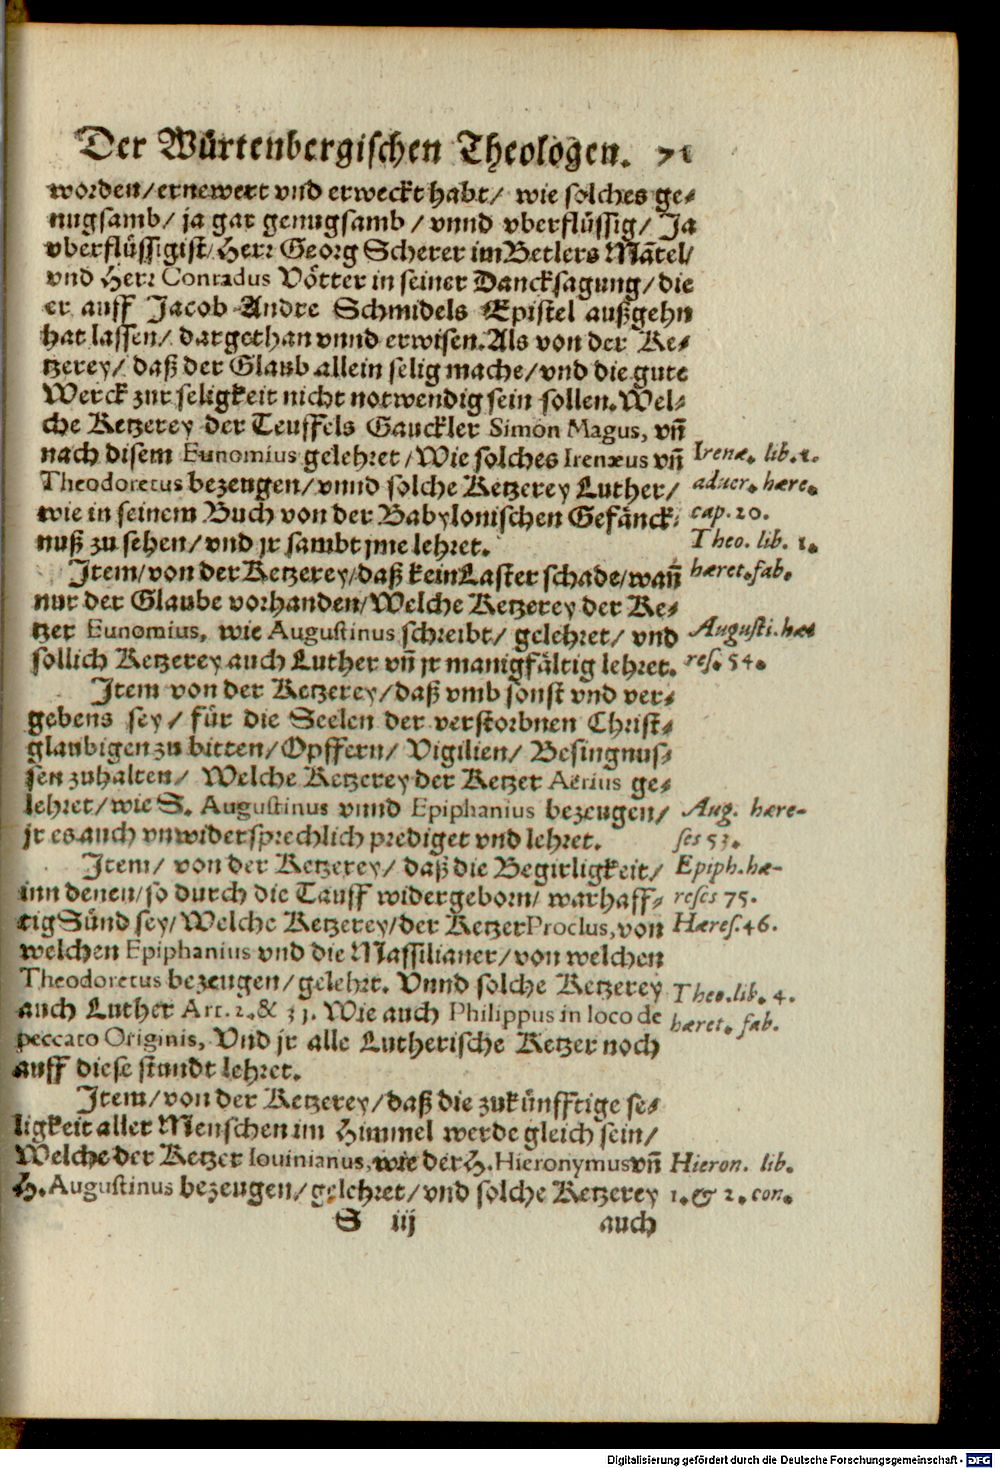 Der Würtenbergischen Theologen. 71
worden/ ernewert vnd erweckt habt/ wie solches ge-
nugsamb/ ja gar genugsamb/ vnnd vberflüssig/ Ja
vberflüssigist/ Herr Georg Scherer im Betlers Mãtel/
vnd Herr Conradus Vötter in seiner Dancksagung/ die
er auff Jacob Andre Schmidels Epistel außgehn
hat lassen/ dargethan vnnd erwisen. Als von der Ke-
tzerey/ daß der Glaub allein selig mache/ vnd die gute
Werck zur seligkeit nicht notwendig sein sollen. Wel-
che Ketzerey der Teuffels Gauckler Simon Magus, vñ
nach disem Eunomius gelehret/ Wie solches Irenæus vñ
Theodoretus bezeugen/ vnnd solche Ketzerey Luther/
wie in seinem Buch von der Babylonischen Gefänck-
nuß zu sehen/ vnd jr sambt jme lehret.
Irenæ. lib. 1.
aduer. hære.
cap. 20.
Theo. lib. 1.
hæret. fab.
Item/ von der Ketzerey/ daß kein Laster schade/ wañ
nur der Glaube vorhanden/ Welche Ketzerey der Ke-
tzer Eunomius, wie Augustinus schreibt/ gelehret/ vnd
sollich Ketzerey auch Luther vñ jr manigfältig lehret.
Augusti. hæ
res. 54.
Item von der Ketzerey/ daß vmb sonst vnd ver-
gebens sey/ für die Seelen der verstorbnen Christ-
glaubigen zu bitten/ Opffern/ Vigilien/ Besingnus-
sen zuhalten/ Welche Ketzerey der Ketzer Aerius ge-
lehret/ wie S. Augustinus vnnd Epiphanius bezeugen/
jr es auch vnwidersprechlich prediget vnd lehret.
Aug. hære-
ses 53.
Item/ von der Ketzerey/ daß die Begirligkeit/
inn denen/ so durch die Tauff widergeborn/ warhaff-
tig Sünd sey/ Welche Ketzerey/ der Ketzer Proclus, von
welchen Epiphanius vnd die Massilianer/ von welchen
Theodoretus bezeugen/ gelehrt. Vnnd solche Ketzerey
auch Luther Art. 2. & 31. Wie auch Philippus in loco de
peccato Originis, Vnd jr alle Lutherische Ketzer noch
auff diese stundt lehret.
Epiph. hæ-
reses 75.
Hæres. 46.
Theo. lib. 4.
hæret. fab.
Item/ von der Ketzerey/ daß die zukünfftige se-
ligkeit aller Menschen im Himmel werde gleich sein/
Welche der Ketzer Iouinianus, wie der H. Hieronymus vñ
H. Augustinus bezeugen/ gelehret/ vnd solche Ketzerey
Hieron. lib.
1. & 2. con.
S iij auch
Digitalisierung gefördert durch die Deutsche Forschungsgemeinschaft - DFG